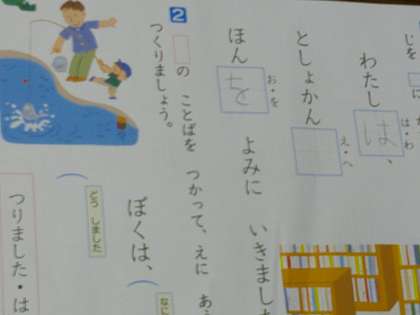 じを
わたし は、
は・わ
としょかん
え・へ
ほん を よみに いきまし
お・を
2 の ことばを つかって、えに あ
つくりましょう。
ぼくは、
どう しました
つりました・は